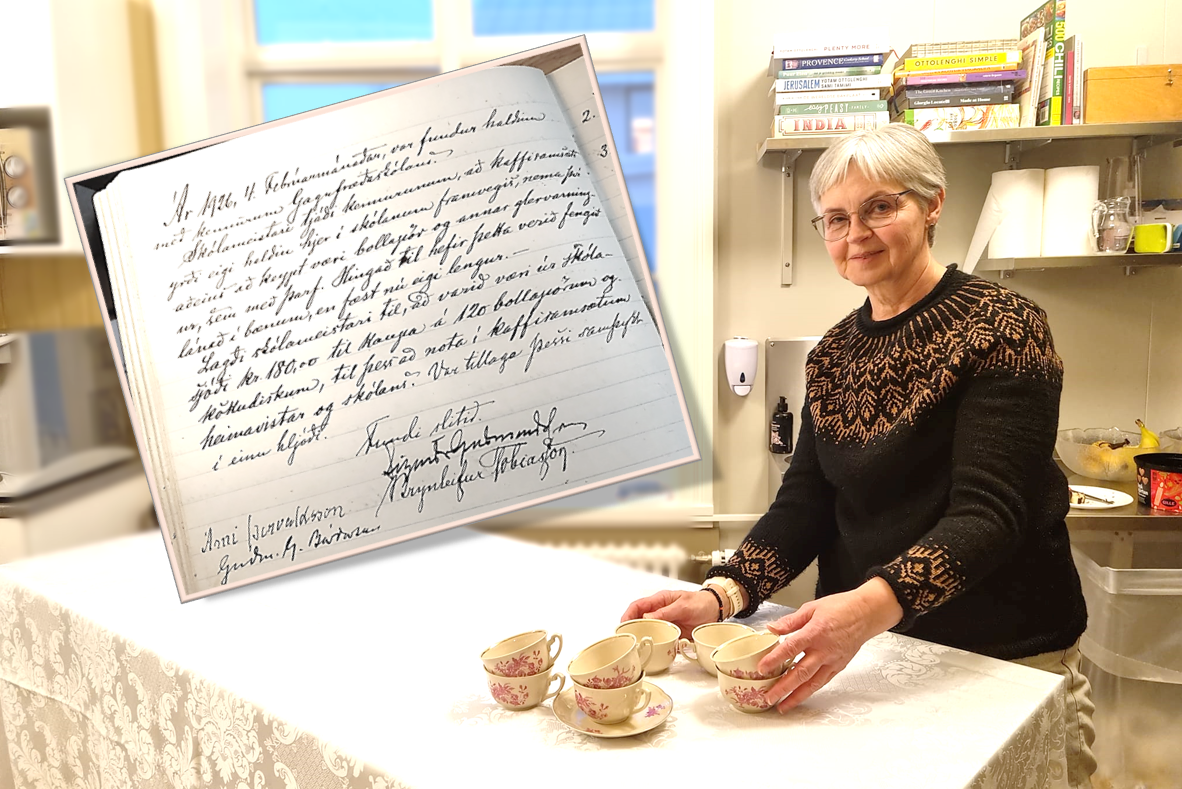 Ár 1926, 4. Febrúarmánaðar, var fundur haldinn
með kennurum Gagnfræðaskólans.
Skólameistari tjáði kennurunum, að kaffisamsæti
yrði eigi haldin hjer í skólanum framvegis, nema því
aðeins að keypt væri bollapör og annar glervarning-
ur, sem með þarf. Hingað til hefir þetta verið fengið
lánað í bænum, en fæst nú eigi lengur.—
Lagði skólameistari til, að varið væri úr skóla-
sjóði kr. 180,00 til kaupa á 120 bollapörum og
kökudiskum, til þess að nota í kaffisamsætum
heimavistar og skólans. Var tillaga þessi samþykt
í einu hljóði.
Fundi slitið.
Sigurd. Guðmundsson
Brynleifur Tobiasson.
Árni Þorvaldsson
Guðm. G. Bárðarson
2.
3
PLENTY MORE
PROVENCE
JERUSALEM YOTAM OTTOLENGHI SAMI TAMIMI
easy FEAST
INDIA
OTTOLENGHI SIMPLE
Giorgio Locatelli Made at Home
500 CHILI